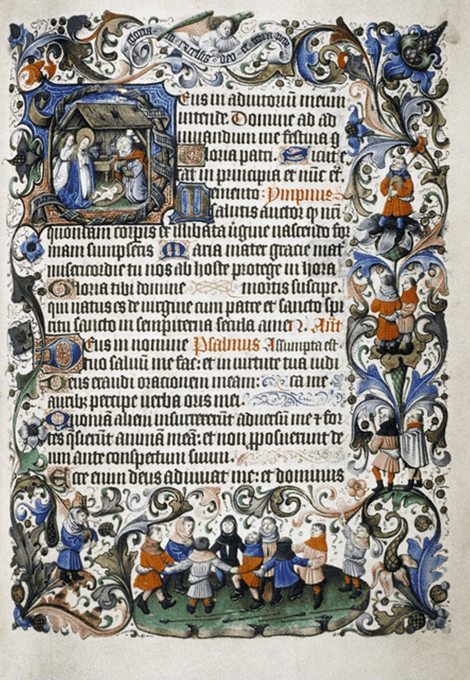 gloria in excelsis deo et in terra
Deus in adiutoriū meum
intende. Domine ad ad
iuuandum me festina
Gloria patri. Sicut e
rat in principia et nūc et.
Memento: Ympnus
salutis auctor q nri
quondam corpis ex illibata v̄gine nascendo for
mam sumpseris Maria mater gracie mat
misericordie tu nos ab hoste protege in hora
Gloria tibi domine mortis suscipe.
qui natus es de virgine cum patre et sancto spi
ritu sancto in sempiterna secula amen. Ant
Deus in nomine Psalmus Assumpta est.
tuo saluum me fac: et in virtute tua iudi
Deus exaudi orationem meam: ca me
auribz percipe uerba oris mei.
Quoniam alieni insurrexerūt aduersū me ⁊ for
tes q̄sierūt animam meā: et non p̄posuerunt de
um ante conspectum suum.
Ecce enim deus adiuuat me: et dominus